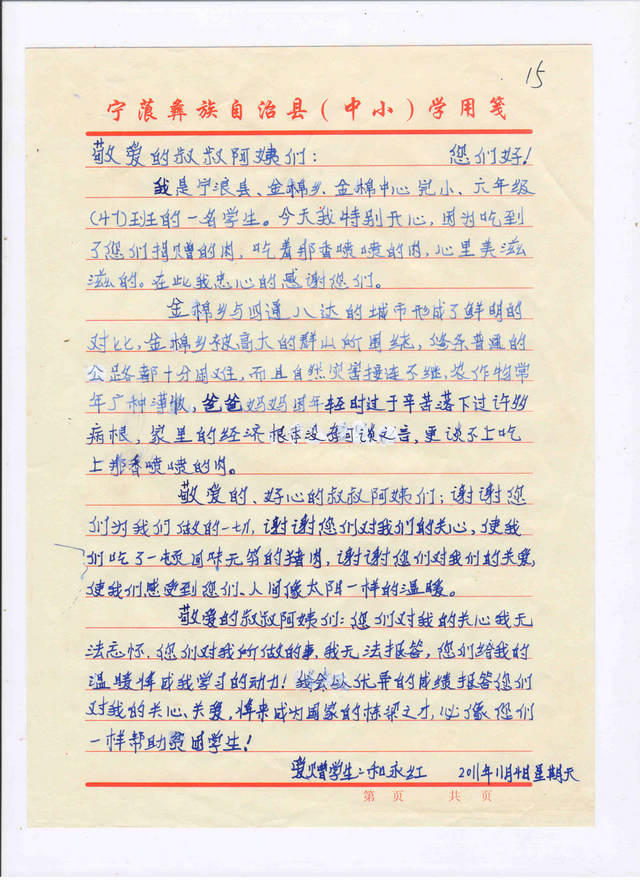 15
宁蒗彝族自治县(中小)学用笺
敬爱的叔叔阿姨们: 您们好!
我是宁浪县、金棉乡、金棉中心完小、六年级
(47)班的一名学生。今天我特别开心,因为吃到
了您们捐赠的肉,吃着那香喷喷的肉,心里美滋
滋的。在此我忠心的感谢您们。
金棉乡与四通八达的城市形成了鲜明的
对比,金棉乡被高大的群山所围绕,修条普通的
公路都十分困难,而且自然灾害接连不继,农作物常
年广种薄收,爸爸妈妈因年轻时过于辛苦落下过许多
病根,家里的经济根本没有可谈之言,更谈不上吃
上那香喷喷的肉。
敬爱的、好心的叔叔阿姨们:谢谢您
们为我们做的一切,谢谢您们对我们的关心,使我
们吃了一顿回味无穷的猪肉,谢谢您们对我们的关爱,
使我们感受到您们、人间像太阳一样的温暖。
敬爱的叔叔阿姨们:您们对我的关心我无
法忘怀,您们对我所做的事,我无法报答,您们给我的
温暖将成我学习的动力!我会以优异的成绩报答您们
对我的关心、关爱,将来成为国家的栋梁之才,必像您们
一样帮助贫困学生!
受赠学生:和永红 2011年11月4日星期天
第 页 共 页